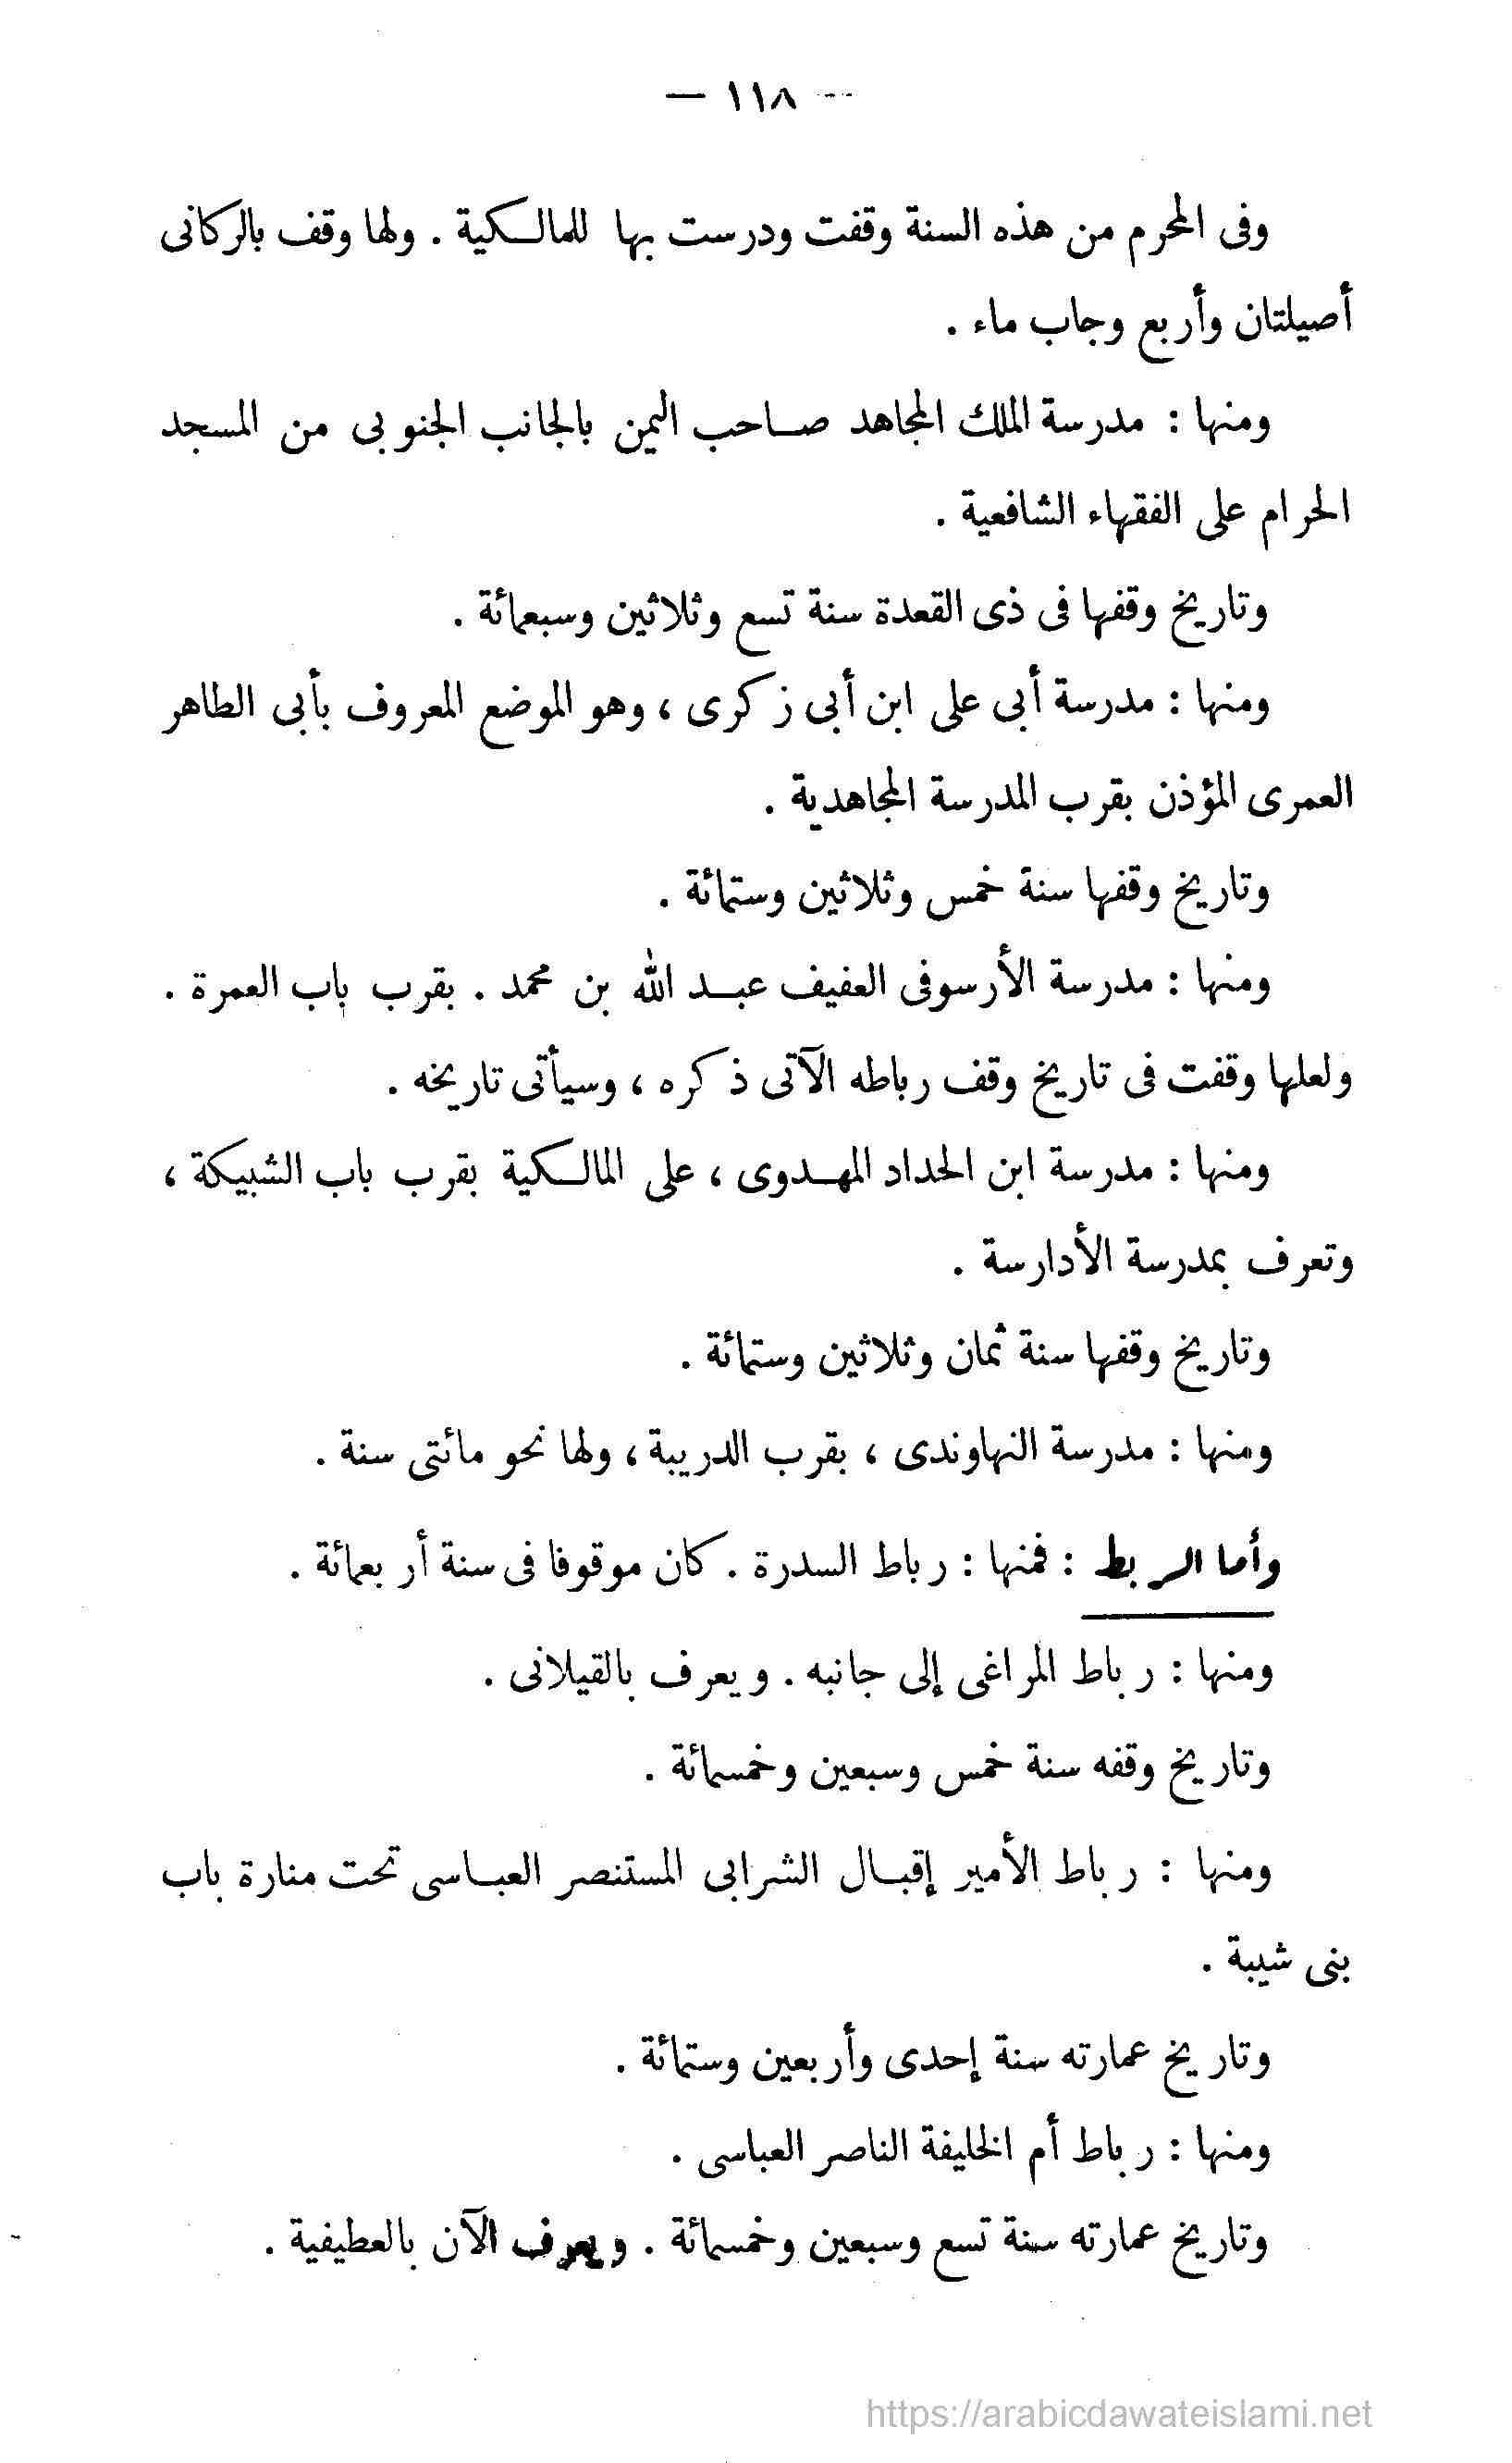 — ١١٨ —
وفى المحرم من هذه السنة وقفت ودرست بها للمالكية . ولها وقف بالركانى
أصيلتان وأربع وجاب ماء .
ومنها : مدرسة الملك المجاهد صاحب اليمن بالجانب الجنوبى من المسجد
الحرام على الفقهاء الشافعية .
وتاريخ وقفها فى ذى القعدة سنة تسع وثلاثين وسبعمائة .
ومنها : مدرسة أبى على ابن أبى زكرى ، وهو الموضع المعروف بأبى الطاهر
العمرى المؤذن بقرب المدرسة المجاهدية .
وتاريخ وقفها سنة خمس وثلاثين وستمائة .
ومنها : مدرسة الأرسوفى العفيف عبد الله بن محمد . بقرب باب العمرة .
ولعلها وقفت فى تاريخ وقف رباطه الآتى ذكره ، وسيأتى تاريخه .
ومنها : مدرسة ابن الحداد المهدوى ، على المالكية بقرب باب الشبيكة ،
وتعرف بمدرسة الأدارسة .
وتاريخ وقفها سنة ثمان وثلاثين وستمائة .
ومنها : مدرسة النهاوندى ، بقرب الدريبة ، ولها نحو مائتى سنة .
وأما الربط : فمنها : رباط السدرة . كان موقوفا فى سنة أربعمائة .
ومنها : رباط المراغى إلى جانبه . ويعرف بالقيلانى .
وتاريخ وقفه سنة خمس وسبعين وخمسمائة .
ومنها : رباط الأمير إقبال الشرابى المستنصر العباسى تحت منارة باب
بنى شيبة .
وتاريخ عمارته سنة إحدى وأربعين وستمائة .
ومنها : رباط أم الخليفة الناصر العباسى .
وتاريخ عمارته سنة تسع وسبعين وخمسمائة . ويعرف الآن بالعطيفية .
https://arabicdawateislami.net